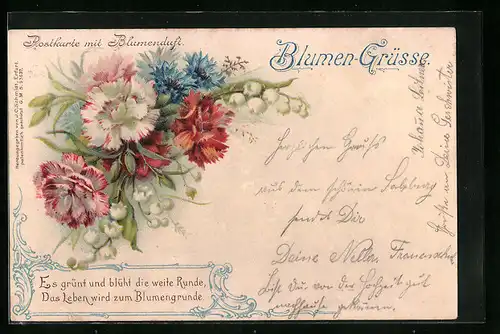 Postkarte mit Blumenduft.
Blumen-Grüsse
Es grünt und blüht die weite Runde,
Das Leben wird zum Blumengrunde.
Herzlichen Gruß
aus dem schönen Salzburg
sendet Dir
Deine Nelly
Bist Du von der Hochzeit gut
nachhause gekommen.
Grüße an Deine Geschwister